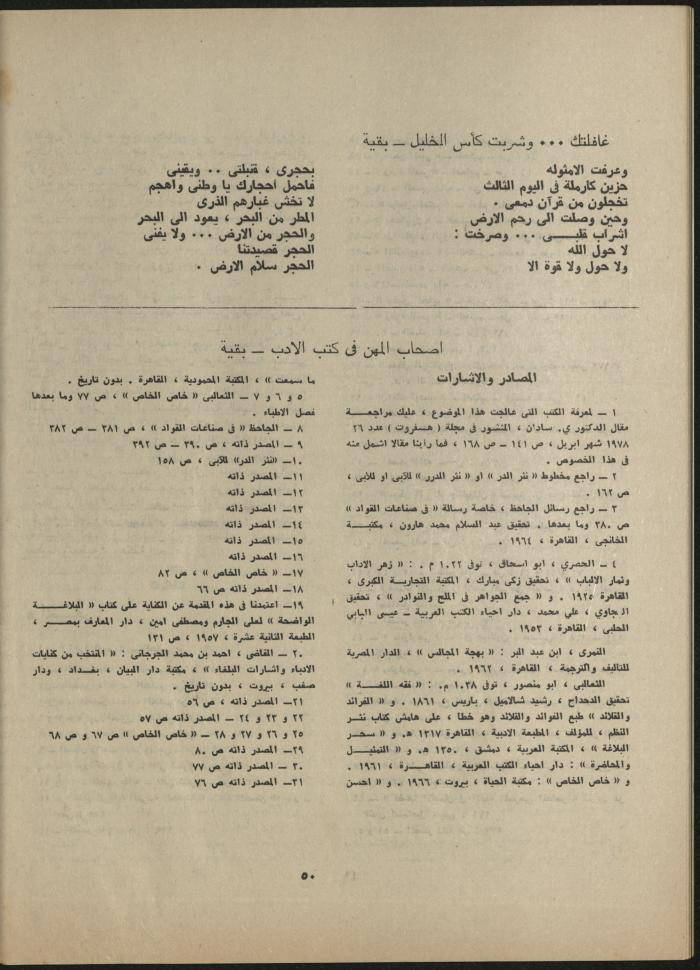 غافلتك ٠٠٠ وشربت كأس الخليل ــ بقية
وعرفت الامثوله
حزين كارملة فى اليوم الثالث
تخجلون من قرآن دمعى ٠
وحين وصلت الى رحم الارض
اشراب قلبـــى ٠٠٠ وصرخت :
لا حول الله
ولا حول ولا قوة الا
بحجرى ، قنبلتى ٠٠ ويقينى
فاحمل أحجارك يا وطنى واهجم
لا تخش غبارهم الذرى
المطر من البحر ، يعود الى البحر
والحجر من الارض ٠٠٠ ولا يفنى
الحجر قصيدتنا
الحجر سلام الارض ٠
اصحاب المهن فى كتب الادب ــ بقية
المصادر والاشارات
١ ــ لمعرفة الكتب التى عالجت هذا الموضوع ، عليك مراجعــة
مقال الدكتور ي. سادان ، المنشور فى مجلة ( هسفروت ) عدد ٢٦
١٩٧٨ شهر ابريل ، ص ١٤١ ــ ص ١٦٨ ، فما رأينا مقالا اشمل منه
فى هذا الخصوص .
٢ ــ راجع مخطوط « نثر الدر » او « نثر الدرر » للآبى او للأبى ،
ص ١٦٢ .
٣ ــ راجع رسائل الجاحظ ، خاصة رسالة « فى صناعات القواد »
ص ٣٨٠ وما بعدها . تحقيق عبد السلام محمد هارون ، مكتبــة
الخانجى ، القاهرة ، ١٩٦٤ .
٤ ــ الحصري ، ابو اسحاق ، توفى ١٠٢٢ م . : « زهر الاداب
وثمار الالباب » ، تحقيق زكى مبارك ، المكتبة التجاريــة الكبرى ،
القاهرة ١٩٢٥ . و « جمع الجواهر فى الملح والنوادر » ، تحقيق
البجاوي ، علي محمد ، دار احياء الكتب العربية ــ عيسى البابي
الحلبى ، القاهرة ، ١٩٥٣ .
النمرى ، ابن عبد البر : « بهجة المجالس » ، الدار المصرية
للتاليف والترجمة ، القاهرة ، ١٩٦٢ .
الثعالبى ، ابو منصور ، توفى ١٠٣٨ م. : « فقه اللغــة »
تحقيق الدحداح ، رشيد شالاميل ، باريس ، ١٨٦١ . و « الفرائد
والقلائد » طبع الفوائد والقلائد وهو خطا ، على هامش كتاب نثـر
النظم ، للمؤلف ، المطبعة الادبية ، القاهرة ١٣١٧ هـ. و « سحـر
البلاغة » ، المكتبة العربية ، دمشق ، ١٣٥٠ هـ. و « التمثيـل
والمحاضرة » : دار احياء الكتب العربية ، القاهــرة ، ١٩٦١ .
و « خاص الخاص » : مكتبة الحياة ، بيروت ، ١٩٦٦ . و « احسن
ما سمعت » ، المكتبة المحمودية ، القاهرة . بدون تاريخ .
٥ و ٦ و ٧ ــ الثعالبى « خاص الخاص » ، ص ٧٧ وما بعدها
فصل الاطباء .
٨ ــ الجاحظ « فى صناعات القواد » ، ص ٣٨١ ــ ص ٣٨٢
٩ ــ المصدر ذاته ، ص ٣٩٠ ــ ص ٣٩٢
١٠ــ «نثر الدر» للآبى ، ص ١٥٨
١١ــ المصدر ذاته
١٢ــ المصدر ذاته
١٣ــ المصدر ذاته
١٤ــ المصدر ذاته
١٥ــ المصدر ذاته
١٦ــ المصدر ذاته
١٧ــ « خاص الخاص » ، ص ٨٢
١٨ــ المصدر ذاته ص ٦٦
١٩ــ اعتمدنا فى هذه المقدمة عن الكناية على كتاب « البلاغــة
الواضحة » لعلى الجارم ومصطفى امين ، دار المعارف بمصــر ،
الطبعة الثانية عشرة ، ١٩٥٧ ، ص ١٣١
٢٠ ــ القاضى ، احمد بن محمد الجرجانى : « المنتخب من كنايات
الادباء واشارات البلغاء » ، مكتبة دار البيان ، بغـداد ، ودار
صعب ، بيروت ، بدون تاريخ .
٢١ــ المصدر ذاته ، ص ٥٦
٢٢ و ٢٣ و ٢٤ ــ المصدر ذاته ص ٥٧
٢٥ و ٢٦ و ٢٧ و ٢٨ ــ « خاص الخاص » ص ٦٧ و ص ٦٨
٢٩ــ المصدر ذاته ص ٨٠
٣٠ ــ المصدر ذاته ص ٧٧
٣١ــ المصدر ذاته ص ٧٦
٥٠